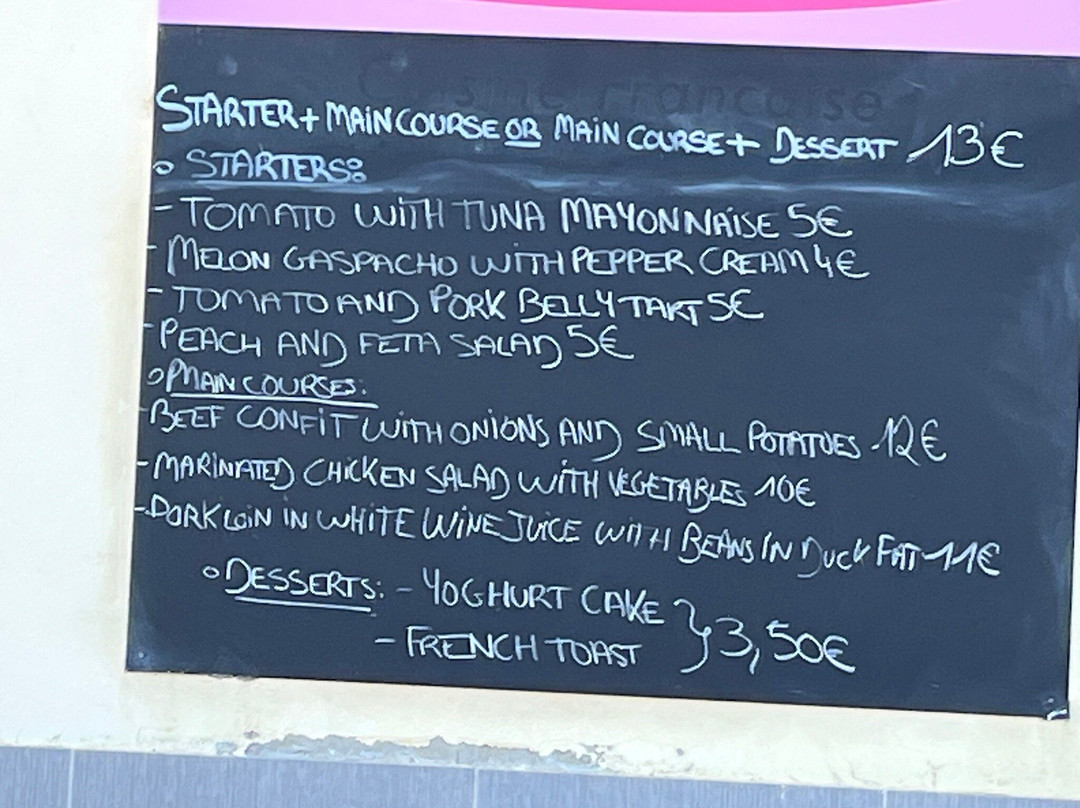 Cuisine Française
STARTER + MAIN COURSE OR MAIN COURSE + DESSERT 13€
o STARTERS:
- TOMATO WITH TUNA MAYONNAISE 5€
- MELON GASPACHO WITH PEPPER CREAM 4€
- TOMATO AND PORK BELLY TART 5€
- PEACH AND FETA SALAD 5€
o MAIN COURSES:
- BEEF CONFIT WITH ONIONS AND SMALL POTATOES 12€
- MARINATED CHICKEN SALAD WITH VEGETABLES 10€
- PORK LOIN IN WHITE WINE JUICE WITH BEANS IN DUCK FAT 11€
o DESSERTS: - YOGHURT CAKE
- FRENCH TOAST } 3,50€